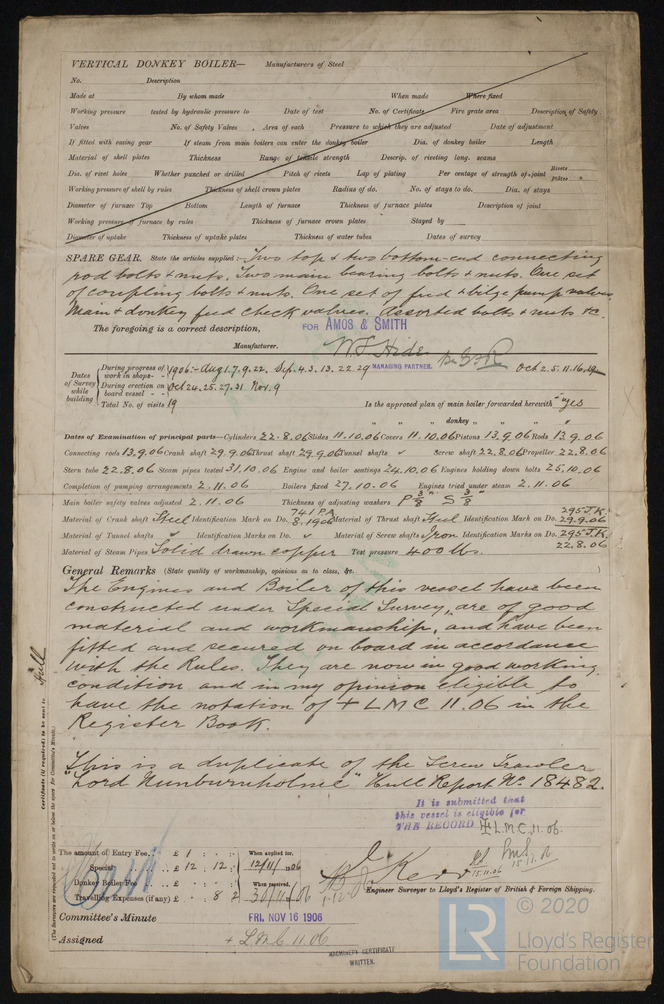 VERTICAL DONKEY BOILER— Manufacturers of Steel
No. Description
Made at By whom made When made Where fixed
Working pressure tested by hydraulic pressure to Date of test No. of Certificate Fire grate area Description of Safety
Valves No. of Safety Valves Area of each Pressure to which they are adjusted Date of adjustment
If fitted with easing gear If steam from main boilers can enter the donkey boiler Dia. of donkey boiler Length
Material of shell plates Thickness Range of tensile strength Descrip. of riveting long. seams
Dia. of rivet holes Whether punched or drilled Pitch of rivets Lap of plating Per centage of strength of joint Rivets Plates
Working pressure of shell by rules Thickness of shell crown plates Radius of do. No. of stays to do. Dia. of stays
Diameter of furnace Top Bottom Length of furnace Thickness of furnace plates Description of joint
Working pressure of furnace by rules Thickness of furnace crown plates Stayed by
Diameter of uptake Thickness of uptake plates Thickness of water tubes Dates of survey
SPARE GEAR. State the articles supplied:— Two top & two bottom-end connecting
rod bolts & nuts. Two main bearing bolts & nuts. One set
of coupling bolts & nuts. One set of feed & bilge pump valves
Main & donkey feed check valves. Assorted bolts & nuts &c.
The foregoing is a correct description, FOR AMOS & SMITH
Manufacturer. MANAGING PARTNER.
Dates of Survey while building
During progress of work in shops - - 1906:- Aug 1.7.9.22. Sep. 4.3.13.22.29 Oct 2.5.11.16.19
During erection on board vessel - - Oct 24.25.27.31 Nov. 9
Total No. of visits 19 Is the approved plan of main boiler forwarded herewith "yes
" " " donkey " " "
Dates of Examination of principal parts—Cylinders 22.8.06 Slides 11.10.06 Covers 11.10.06 Pistons 13.9.06 Rods 13.9.06
Connecting rods 13.9.06 Crank shaft 29.9.06 Thrust shaft 29.9.06 Tunnel shafts ✓ Screw shaft 22.8.06 Propeller 22.8.06
Stern tube 22.8.06 Steam pipes tested 31.10.06 Engine and boiler seatings 24.10.06 Engines holding down bolts 25.10.06
Completion of pumping arrangements 2.11.06 Boilers fixed 27.10.06 Engines tried under steam 2.11.06
Main boiler safety valves adjusted 2.11.06 Thickness of adjusting washers P 3/8" S 3/8"
Material of Crank shaft Steel Identification Mark on Do. 741 P.A. 8.1906 Material of Thrust shaft Steel Identification Mark on Do. 295 J.K. 29.9.06
Material of Tunnel shafts ✓ Identification Marks on Do. ✓ Material of Screw shafts Iron Identification Marks on Do. 295 J.K. 22.8.06
Material of Steam Pipes Solid drawn copper Test pressure 400 lbs.
General Remarks (State quality of workmanship, opinions as to class, &c.
The Engines and Boiler of this vessel have been
constructed under Special Survey, are of good
material and workmanship, and have been
fitted and secured on board in accordance
with the Rules. They are now in good working
condition and in my opinion eligible to
have the notation of + LMC 11.06 in the
Register Book.
This is a duplicate of the Screw Trawler
"Lord Nunburnholme" Hull Report No. 18482.
It is submitted that
this vessel is eligible for
THE RECORD + L.M.C. 11.06.
Certificate (if required) to be sent to Hull
(The Surveyors are requested not to write on or below the space for Committee's Minute.)
The amount of Entry Fee. . £ 1 : : When applied for,
Special £ 12 : 12 : 12/11/1906
Donkey Boiler Fee £ : : When received,
Travelling Expenses (if any) £ : 8 : 2 30/11/06
15.11.06
Engineer Surveyor to Lloyd's Register of British & Foreign Shipping.
Committee's Minute FRI. NOV 16 1906
Assigned + L.M.C. 11.06
MACHINERY CERTIFICATE
WRITTEN.
LR
© 2020
Lloyd's Register
Foundation